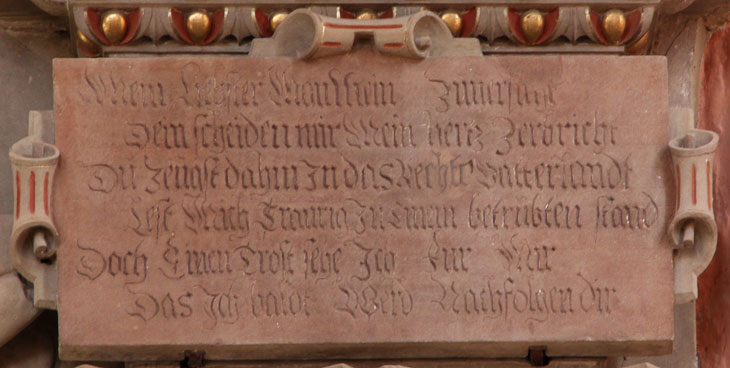 Mein Liebster Mondschein Zuuersicht
Dein scheiden mir Mein hertz Zerbricht
Du Zeugst dahin In das Recht Vatterlandt
Lest Mich Traurig In Einem betrübten stand
Doch Einen Trost sehe Ich Für Mir
Das Ich baldt Werd Nachfolgen dir